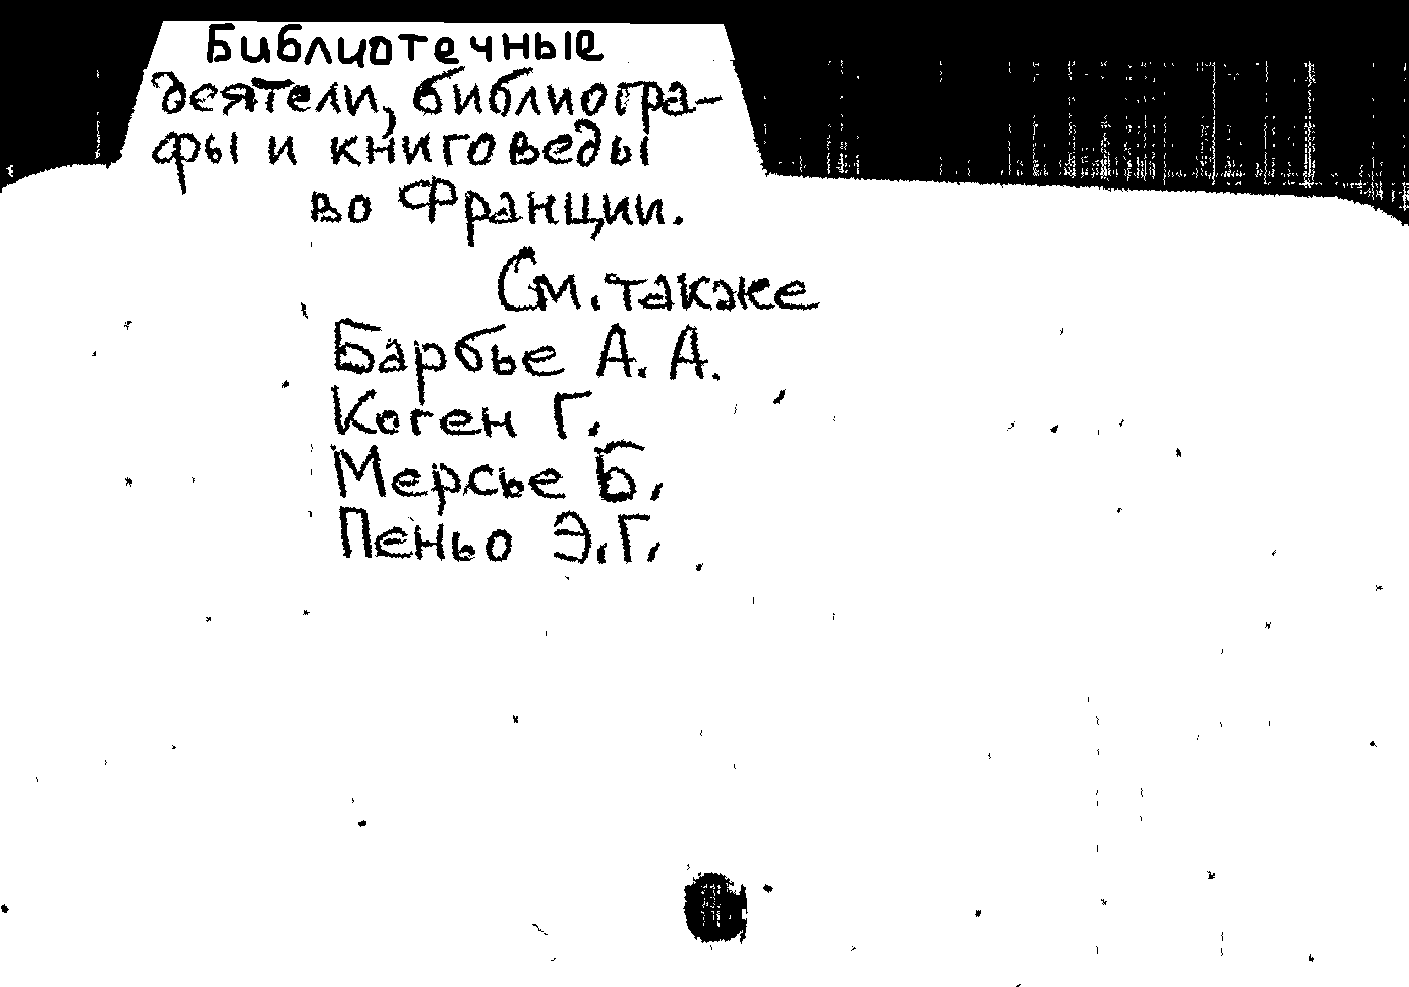 Библиотечные
деятели, библиогра-
фы и книговеды
во Франции.
См. также
Барбье А. А.
Коген Г.
Мерсье Б.
Пеньо Э.Г.